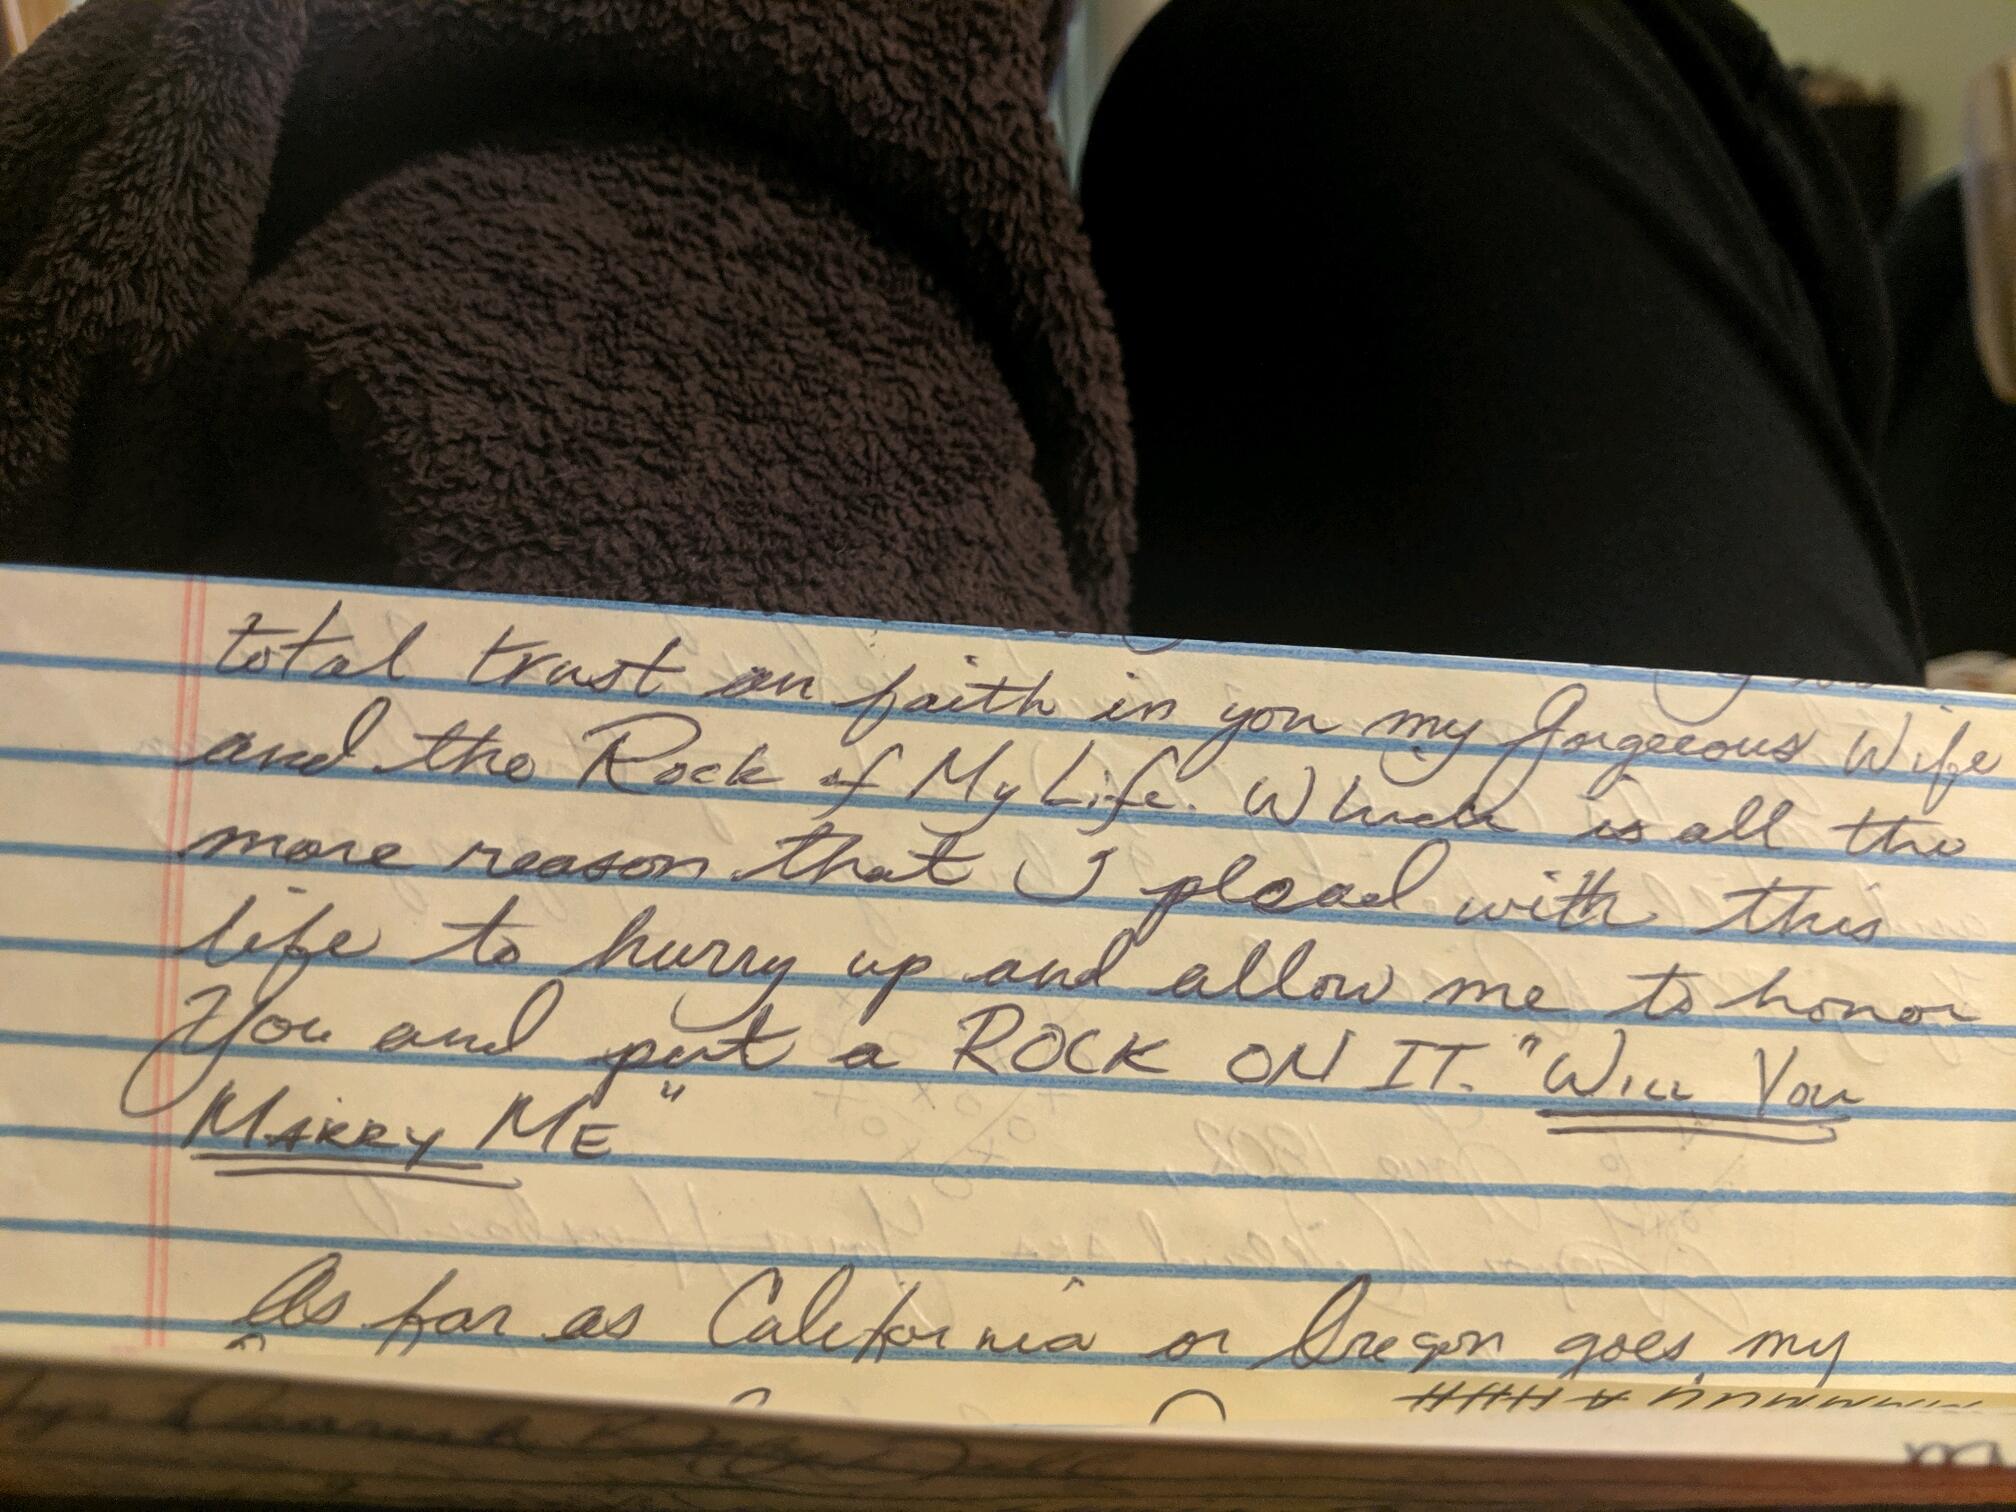 total trust an faith in you my Gorgeous Wife
and the Rock of My Life. Which is all the
more reason that I plead with this
life to hurry up and allow me to honor
You and put a ROCK ON IT. "Will You
MARRY ME"
As far as California or Oregon goes my